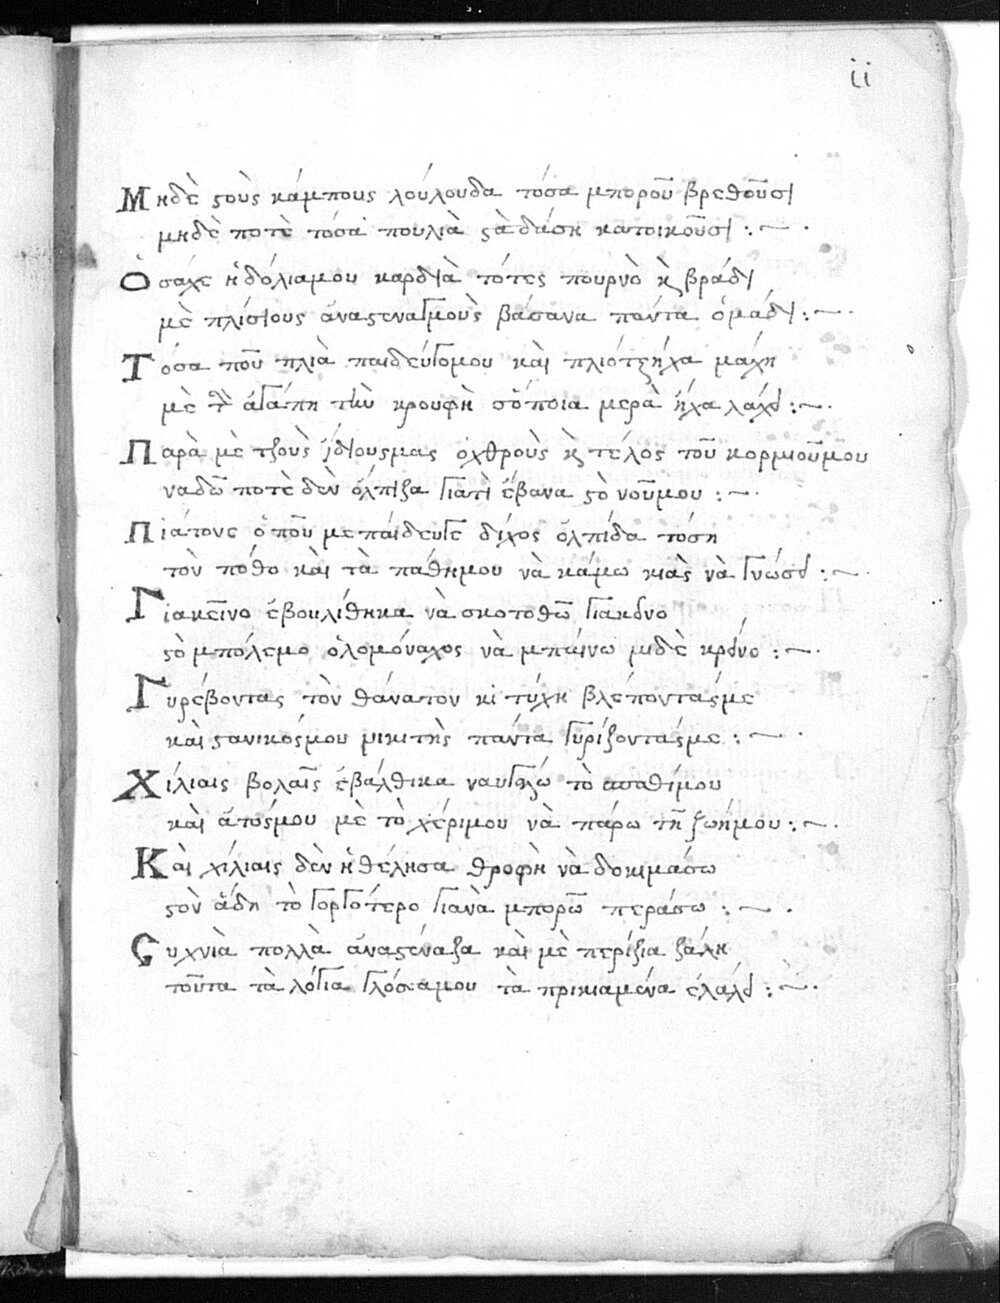 ii
Μηδὲ ϛοὺς κάμπους λούλουδα τόσα μποροῦ βρεθοῦσι
μηδὲ ποτὲ τόσα πουλιὰ ϛὰ δάση κατοικοῦσι :~ .
Ὁσάχε ἡ δόλιαμου καρδιὰ τότες πουρνὸ κ̀ βράδι
μὲ πλίσιους ἀναϛεναγμοὺς βάσανα πάντα ὁμάδι :~ .
Τόσα ποῦ πλιὰ παιδεύγομου καὶ πλιότζηχα μάχη
μὲ ἀγάπη τὴν κρουφὴ σὅποια μερὰ ἤχα λάχει :~ .
Παρὰ μὲ τζοὺς ἰδίουςμας ὀχθροὺς κ̀ τέλος τοῦ κορμιοῦμου
ναδῶ ποτὲ δὲν ὄλπιζα γιατὶ ἔβανα ϛὸ νοῦμου :~ .
Πιάτονε ὁποῦ με παίδευγε δίχος ὀλπίδα τόση
τὸν πόθο καὶ τὰ πάθημου νὰ κάμω κιὰς νὰ γνώσει :~ .
Γιακεῖνο ἐβουλίθηκα νὰ σκοτοθῶ γιακείνο
ϛὸ μπόλεμο ὁλομόναχος νὰ μπαίνω μιδὲ κρείνο :~ .
Γυρέβοντας τὸν θάνατον κι τύχη βλέπονταςμε
καὶ ϛανικόςμου μικιτὴς πάντα γυρίζονταςμε :~ .
Χίλιαις βολαῖς ἐβάλθικα ναυγάλω τὸ σπαθίμου
καὶ ἀτόςμου μὲ τὸ χέριμου νὰ πάρω τὴ ζωήμου :~ .
Καὶ χίλιαις δὲν ἠθέλησα θροφὴ νὰ δοκιμάσω
ϛὸν ἅδη τὸ γοργότερο γιανὰ μπορῶ περάσω :~ .
Ϛυχνιὰ πολλὰ ἀναϛέναξα καὶ μὲ περίξια ζάλη
τοῦτα τὰ λόγια γλόσσαμου τὰ πρικιαμένα ἐλάλει :~ .